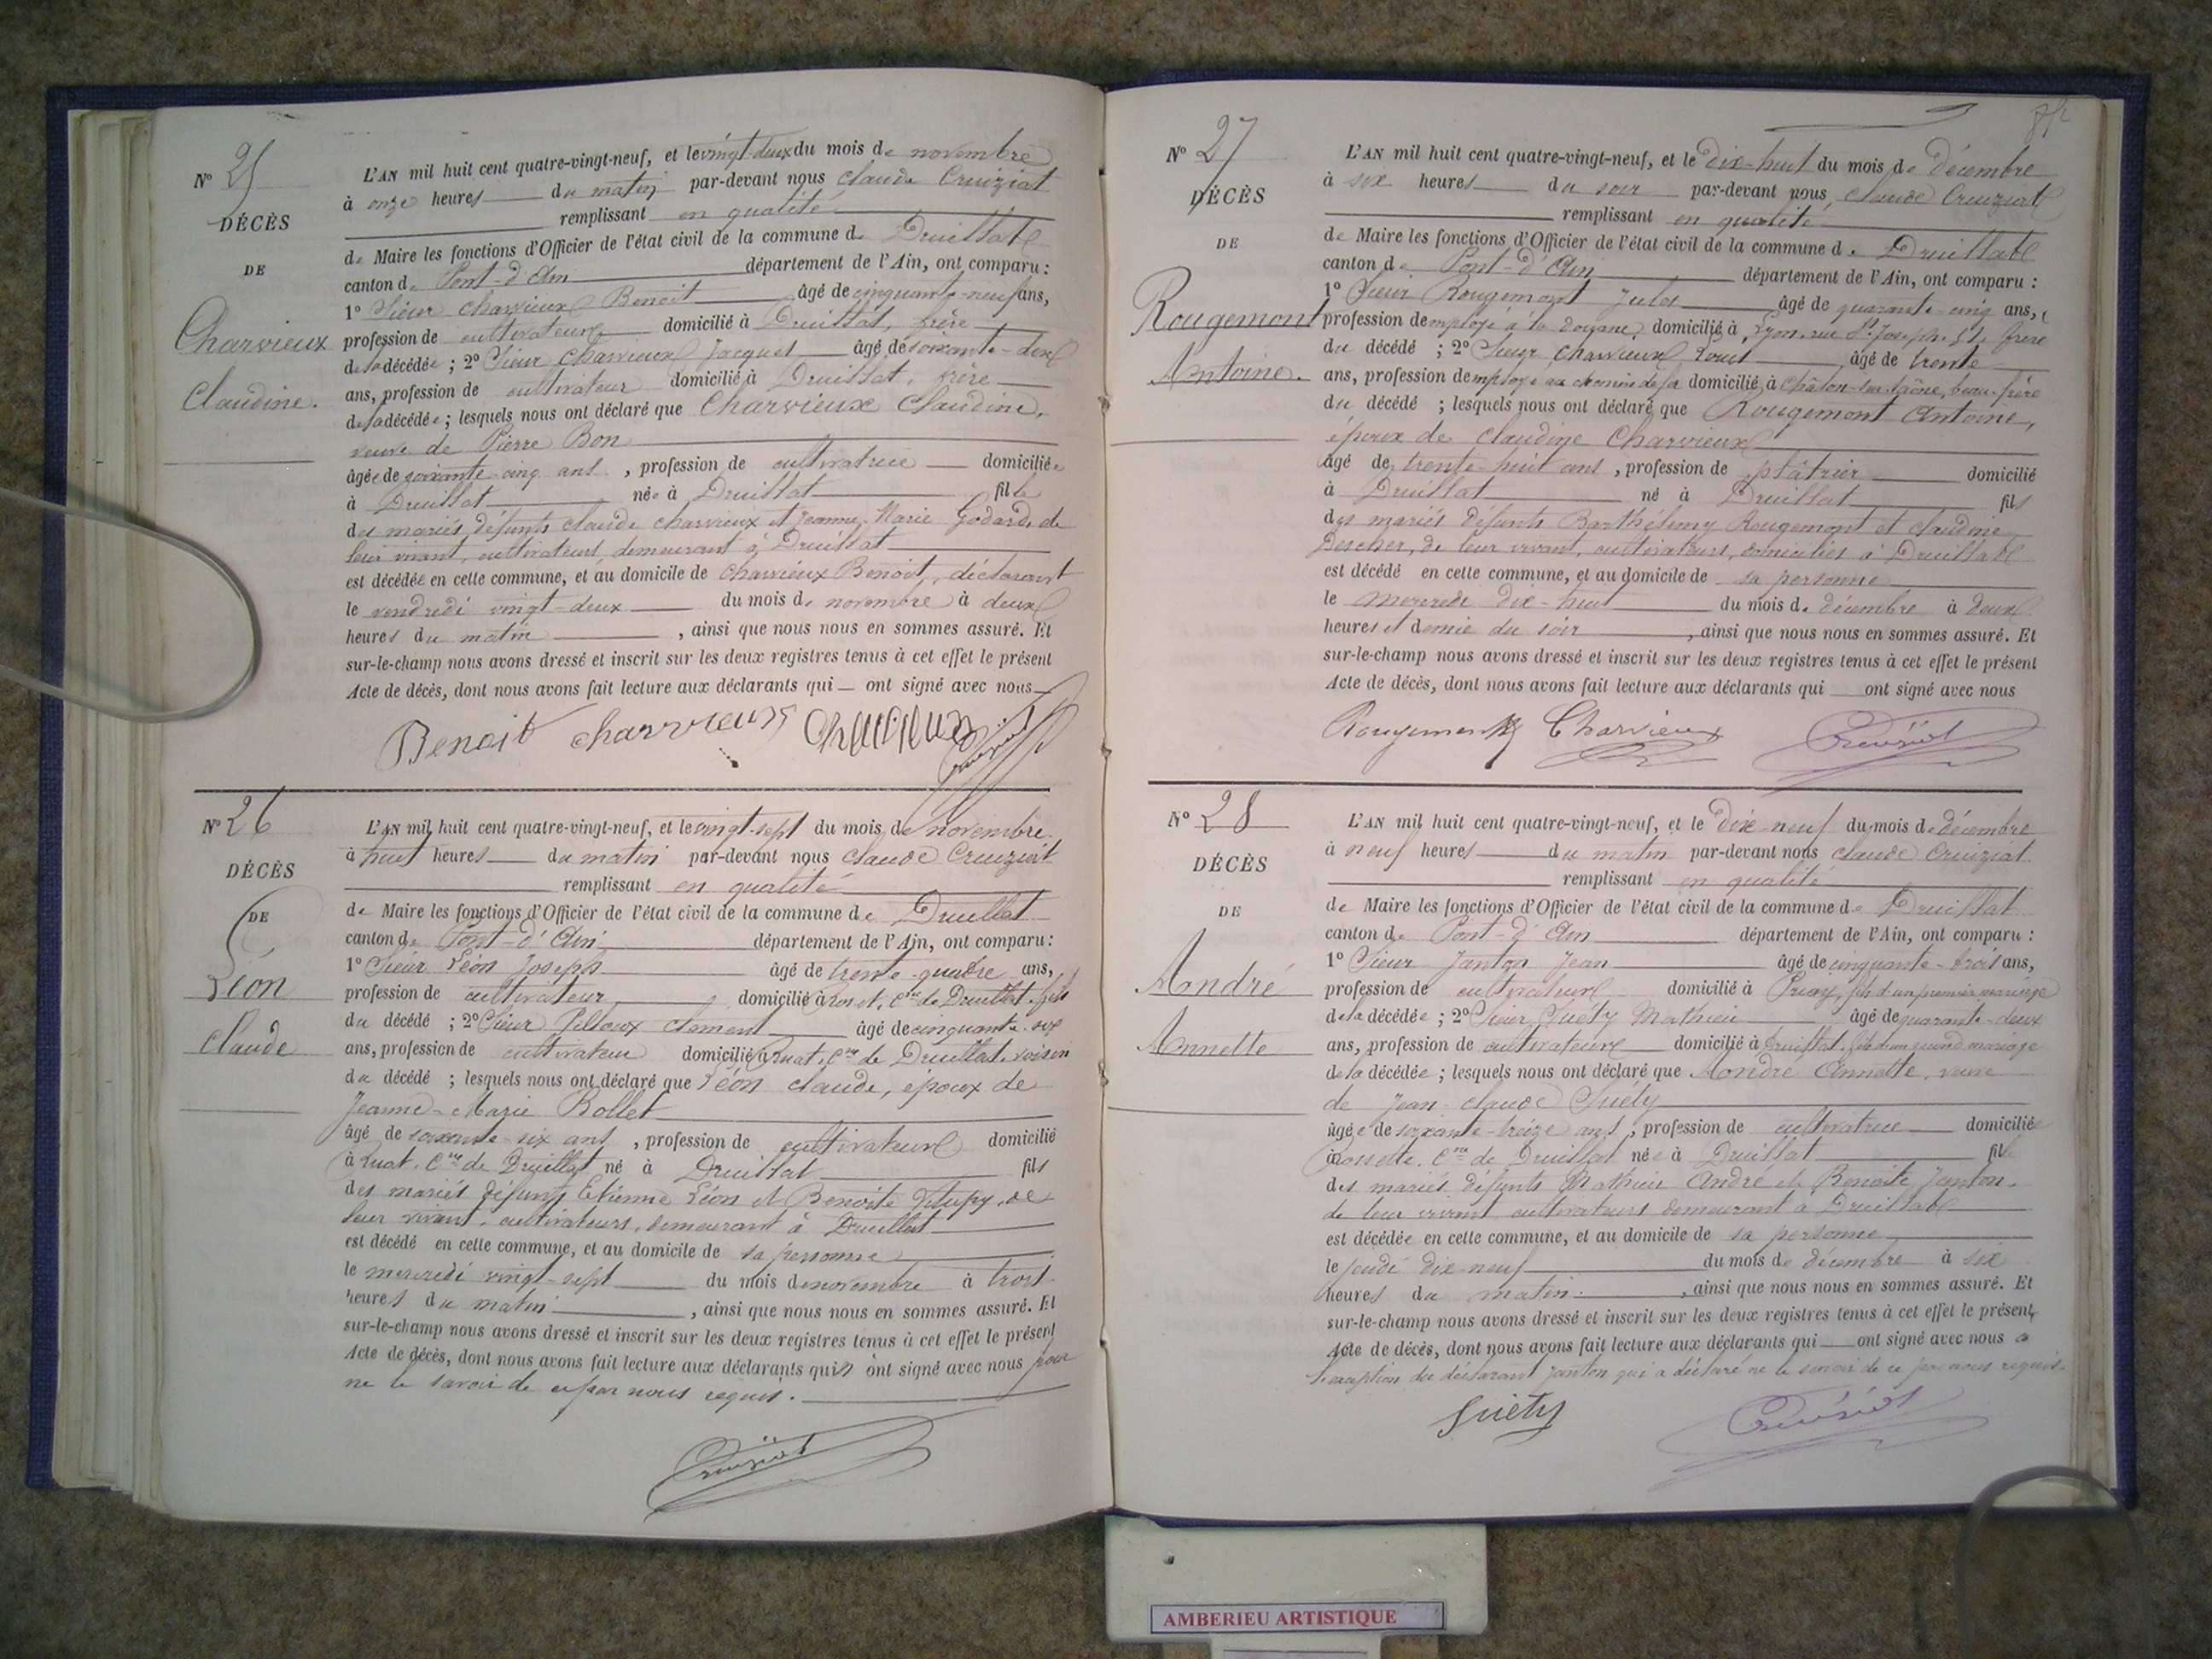 N° 25
DÉCÈS
DE
Charvieux
Claudine.
L'AN mil huit cent quatre-vingt-neuf, et le vingt-deux du mois de novembre
à onze heures du matin par-devant nous Claude Cruiziat
remplissant en qualité
de Maire les fonctions d'Officier de l'état civil de la commune de Druillat
canton de Pont-d'Ain département de l'Ain, ont comparu :
1° Sieur Charvieux Benoit âgé de cinquante-neuf ans,
profession de cultivateur domicilié à Druillat, frère
de la décédée ; 2° Sieur Charvieux Jacques âgé de soixante-dix
ans, profession de cultivateur domicilié à Druillat, frère
de la décédée ; lesquels nous ont déclaré que Charvieux Claudine,
veuve de Pierre Bon
âgée de soixante-cinq ans, profession de cultivatrice domiciliée
à Druillat née à Druillat fille
des mariés défunts Claude Charvieux et Jeanne-Marie Godard, de
leur vivant, cultivateurs, demeurant à Druillat
est décédée en cette commune, et au domicile de Charvieux Benoit, déclarant
le vendredi vingt-deux du mois de novembre à deux
heures du matin, ainsi que nous nous en sommes assuré. Et
sur-le-champ nous avons dressé et inscrit sur les deux registres tenus à cet effet le présent
Acte de décès, dont nous avons fait lecture aux déclarants qui ont signé avec nous
Benoit Charvieux Charvieux Cruiziat
N° 26
DÉCÈS
DE
Léon
Claude
L'AN mil huit cent quatre-vingt-neuf, et le vingt-sept du mois de novembre
à huit heures du matin par-devant nous Claude Cruiziat
remplissant en qualité
de Maire les fonctions d'Officier de l'état civil de la commune de Druillat
canton de Pont-d'Ain département de l'Ain, ont comparu :
1° Sieur Léon Joseph âgé de trente-quatre ans,
profession de cultivateur domicilié à cne de Druillat, fils
du décédé ; 2° Sieur Pelloux Clément âgé de cinquante-six
ans, profession de cultivateur domicilié à Ruat, cne de Druillat, voisin
du décédé ; lesquels nous ont déclaré que Léon Claude, époux de
Jeanne-Marie Bollet
âgé de soixante-six ans, profession de cultivateur domicilié
à Ruat, Cne de Druillat né à Druillat fils
des mariés défunts Etienne Léon et Benoite de
leur vivant, cultivateurs, demeurant à Druillat
est décédé en cette commune, et au domicile de sa personne
le mercredi vingt-sept du mois de novembre à trois
heures du matin, ainsi que nous nous en sommes assuré. Et
sur-le-champ nous avons dressé et inscrit sur les deux registres tenus à cet effet le présent
Acte de décès, dont nous avons fait lecture aux déclarants qui n'ont signé avec nous pour
ne le savoir de ce par nous requis.
Cruiziat
N° 27
DÉCÈS
DE
Rougemont
Antoine.
L'AN mil huit cent quatre-vingt-neuf, et le dix-huit du mois de décembre
à six heures du soir par-devant nous Claude Cruiziat
remplissant en qualité
de Maire les fonctions d'Officier de l'état civil de la commune de Druillat
canton de Pont-d'Ain département de l'Ain, ont comparu :
1° Sieur Rougemont Jules âgé de quarante-cinq ans,
profession de employé à la douane domicilié à Lyon, rue St Joseph, 51, frère
du décédé ; 2° Sieur Charvieux Louis âgé de trente
ans, profession de employé au chemin de fer domicilié à Châlon-sur-Saône, beau-frère
du décédé ; lesquels nous ont déclaré que Rougemont Antoine,
époux de Claudine Charvieux
âgé de trente-huit ans, profession de plâtrier domicilié
à Druillat né à Druillat fils
des mariés défunts Barthélemy Rougemont et Claudine
Pescher, de leur vivant, cultivateurs, domiciliés à Druillat
est décédé en cette commune, et au domicile de sa personne
le mercredi dix-huit du mois de décembre à deux
heures et demie du soir, ainsi que nous nous en sommes assuré. Et
sur-le-champ nous avons dressé et inscrit sur les deux registres tenus à cet effet le présent
Acte de décès, dont nous avons fait lecture aux déclarants qui ont signé avec nous
Rougemont Charvieux Cruiziat
N° 28
DÉCÈS
DE
André
Annette
L'AN mil huit cent quatre-vingt-neuf, et le dix-neuf du mois de décembre
à neuf heures du matin par-devant nous Claude Cruiziat
remplissant en qualité
de Maire les fonctions d'Officier de l'état civil de la commune de Druillat
canton de Pont-d'Ain département de l'Ain, ont comparu :
1° Sieur Janton Jean âgé de cinquante-trois ans,
profession de cultivateur domicilié à Priay, fils d'un premier mariage
de la décédée ; 2° Sieur Suély Mathieu âgé de quarante-deux
ans, profession de cultivateur domicilié à Druillat, fils d'un second mariage
de la décédée ; lesquels nous ont déclaré que André Annette, veuve
de Jean-Claude Suély
âgée de soixante-treize ans, profession de cultivatrice domiciliée
à Rossette, Cne de Druillat née à Druillat fille
des mariés défunts Mathieu André et Benoite Janton,
de leur vivant cultivateurs demeurant à Druillat
est décédée en cette commune, et au domicile de sa personne
le jeudi dix-neuf du mois de décembre à six
heures du matin, ainsi que nous nous en sommes assuré. Et
sur-le-champ nous avons dressé et inscrit sur les deux registres tenus à cet effet le présent
Acte de décès, dont nous avons fait lecture aux déclarants qui ont signé avec nous à
l'exception du déclarant Janton qui a déclaré ne le savoir de ce par nous requis.
Suély Cruiziat
AMBERIEU ARTISTIQUE